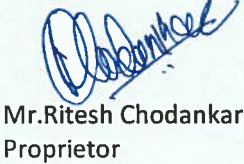 Mr.Ritesh Chodankar
Proprietor